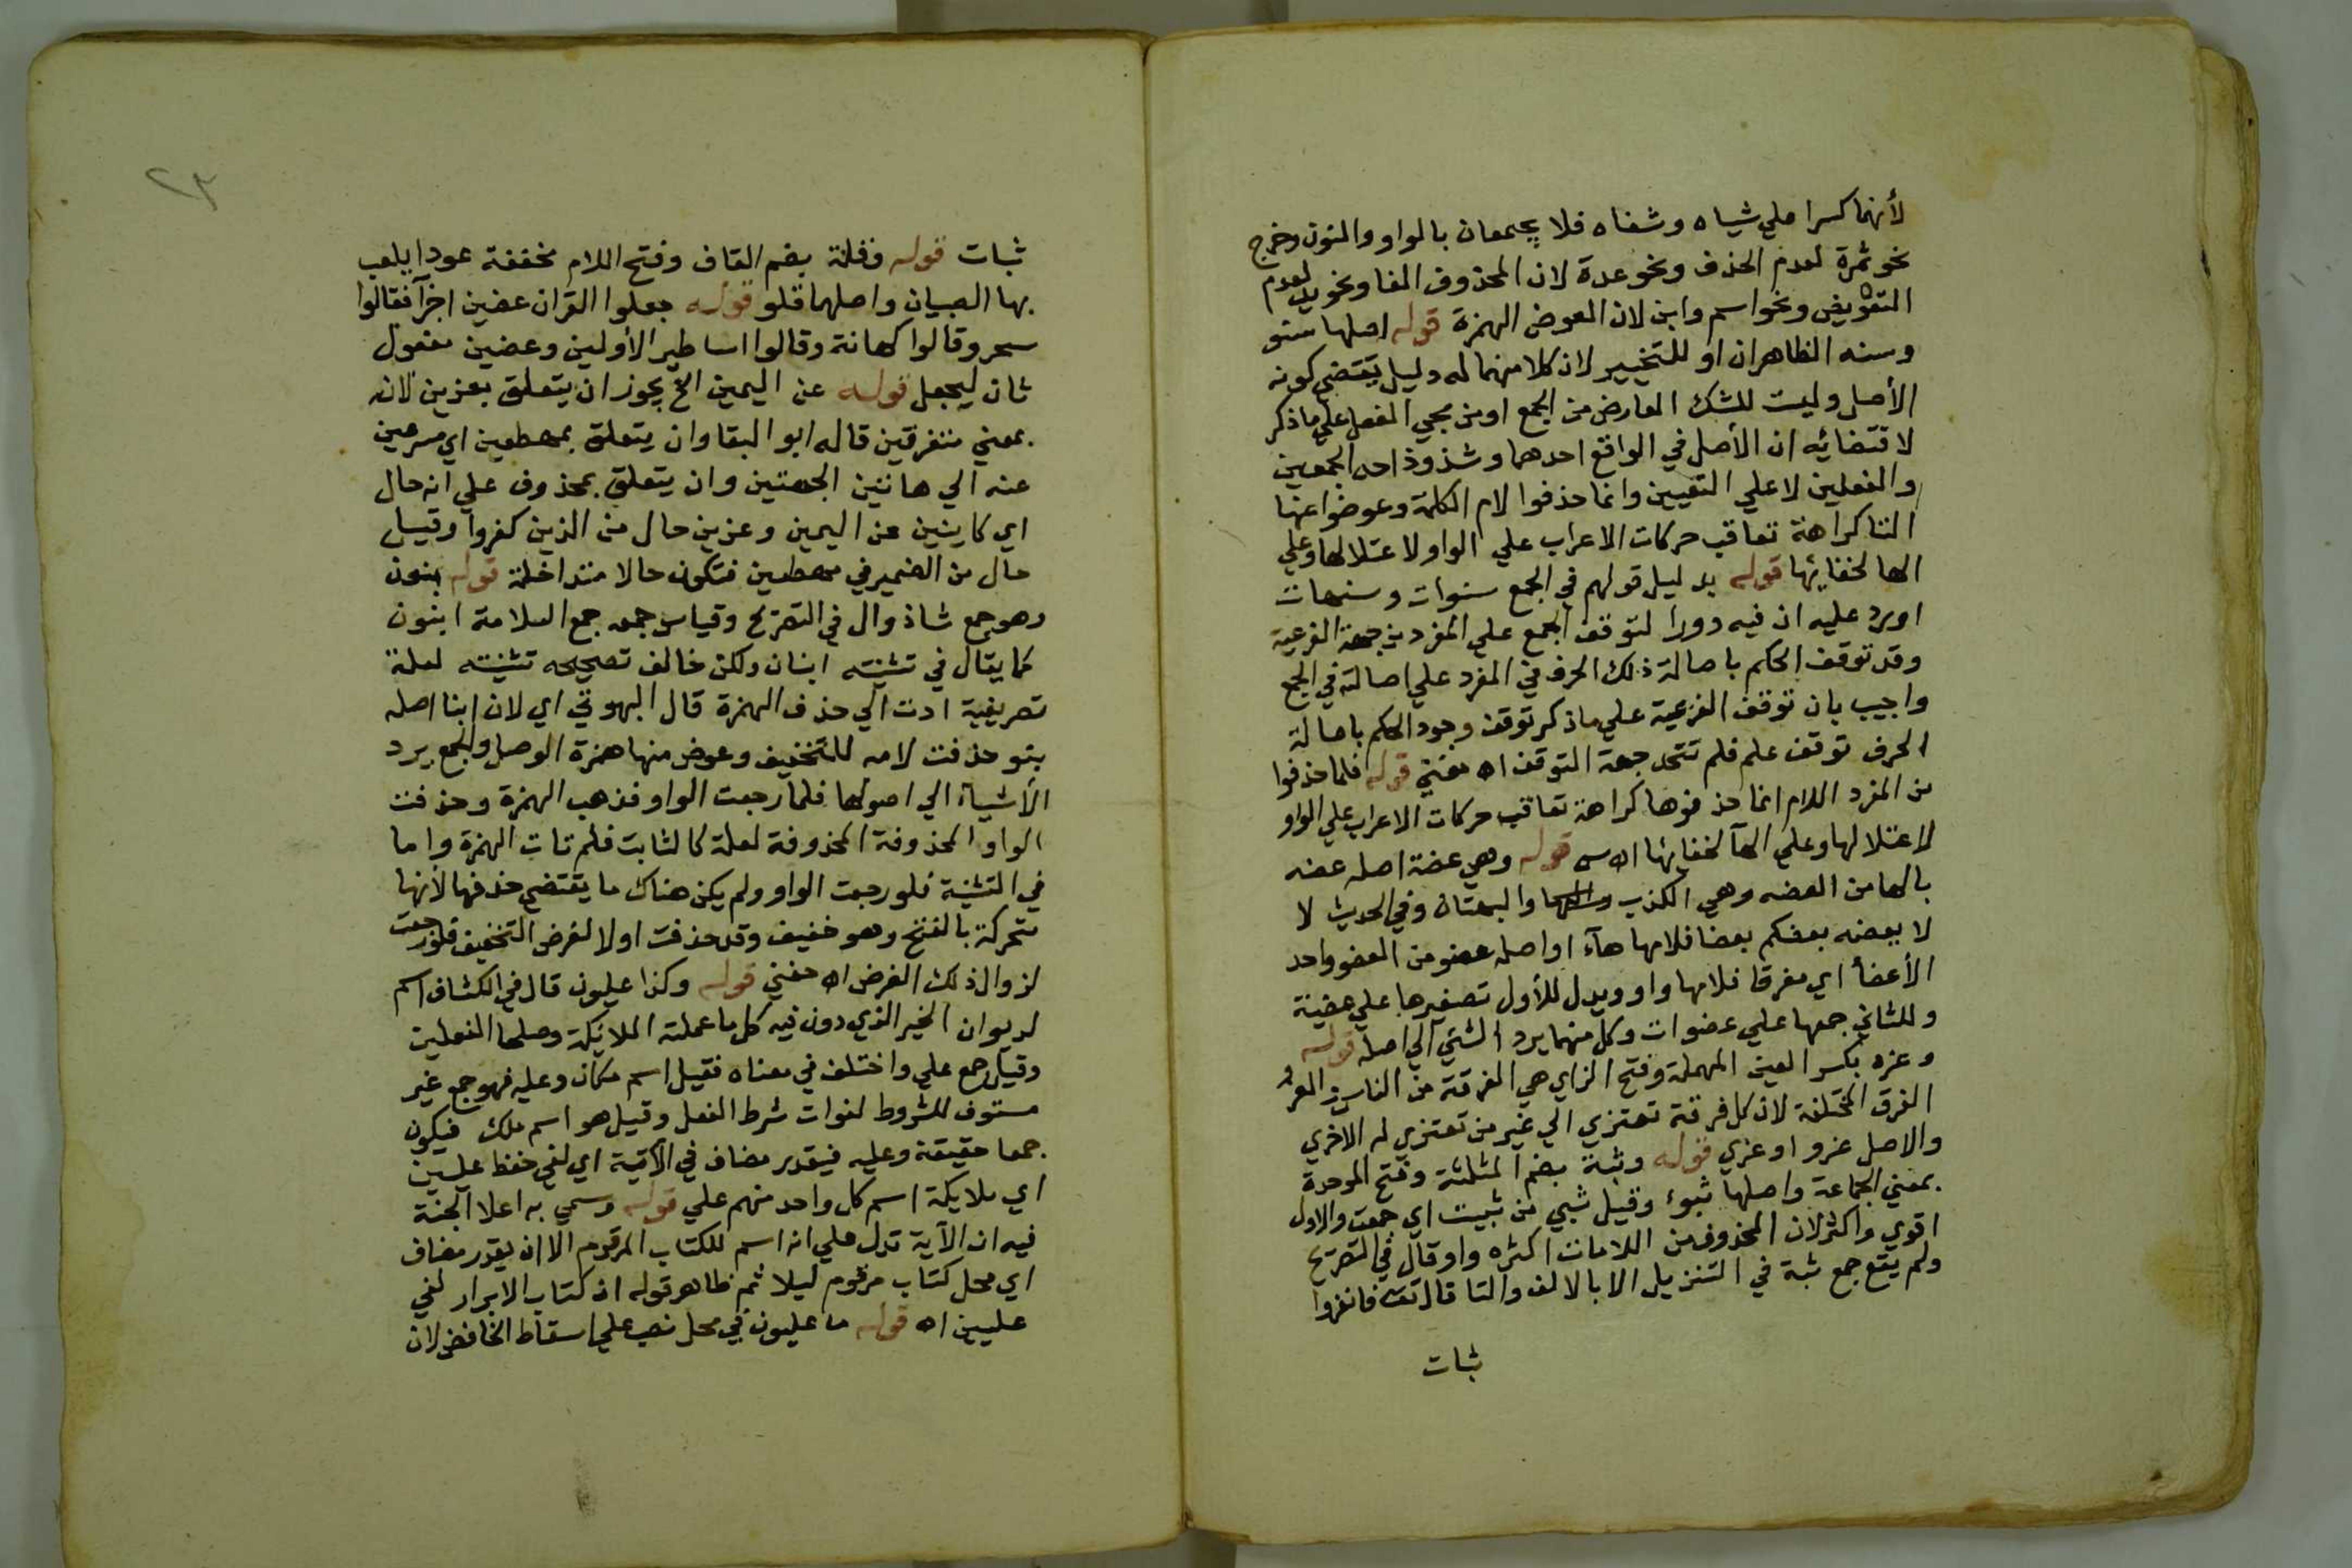 لأنهما كسرا علي شياه وشفاه فلا يجمعان بالواو والنون وخرج
نحو ثمرة لعدم الحذف ونحو عدة لان المحذوف الفا ونحو يد لعدم
التعويض ونحو اسم وابن لان العوض الهمزة قوله اصلها سنو
وسنه الظاهر ان او للتخيير لان كلا منهما له دليل يقتضي كونه
الأصل وليست للشك المعارض من الجمع او من مجي الفعل علي ما ذكر
لاقتضائه ان الأصل في الواقع احدهما وشذوذ احد الجمعين
والفعلين لا علي التعيين وانما حذفوا لام الكلمة وعوضوا عنها
التا كراهة تعاقب حركات الاعراب علي الواو لاعتلالها وعلي
الها لخفائها قوله بدليل قولهم في الجمع سنوات وسنهات
اورد عليه ان فيه دورا لتوقف الجمع علي المفرد من جهة الفرعية
وقد توقف الحكم باصالة ذلك الحرف في المفرد علي اصالته في الجمع
واجيب بان توقف الفرعية علي ما ذكر توقف وجود الحكم باصالة
الحرف توقف علم فلم تتحد جهة التوقف اه مغني قوله فلما حذفوا
من المفرد اللام انما حذفوها كراهة تعاقب حركات الاعراب علي الواو
لاعتلالها وعلي الهآ لخفايها اه س قوله وهي عضة اصله عضه
بالها من العضه وهي الكذب والبهتان وفي الحديث لا
لا يعضه بعضكم بعضا فلامها هآء او اصله عضو من العضو واحد
الأعضأ اي مفرقا فلامها واو ويدل للأول تصغيرها علي عضيهة
وللثاني جمعها علي عضوات وكل منهما يرد الشئ الي اصله قوله
وعزه بكسر العين المهملة وفتح الزاي هي الفرقة من الناس والعزون
الفرق المختلفة لان كل فرقة تعتزي الي غير من تعتزي له الاخري
والاصل عزو او عزي قوله وثبة بضم المثلثة وفتح الموحدة
بمعني الجماعة واصلها ثبو وقيل ثبي من ثبيت اي جمعت والاول
اقوي واكثر لان المحذوف من اللامات اكثره واو وقال في التصريح
ولم يقع جمع ثبة في التنزيل الا بالالف والتا قال تعه فانفروا
ثبات
٢٣
ثبات قوله وقلة بضم القاف وفتح اللام مخففة عودا يلعب
بها الصبيان واصلها قلو قوله جعلوا القران عضين اجزآ فقالوا
سحر وقالوا كهانة وقالوا اساطير الأولين وعضين مفعول
ثان ليجعل قوله عن اليمين الخ يجوز ان يتعلق بعزين لانه
بمعني متفرقين قاله ابو البقا وان يتعلق بمهطعين اي مسرعين
عنه الي هاتين الجهتين وان يتعلق بمحذوف علي انه حال
اي كاينين عن اليمين وعزين حال من الذين كفروا وقيل
حال من الضمير في مهطعين فتكون حالا متداخلة قوله بنون
وهو جمع شاذ وال في التصريح وقياس جمعه جمع السلامة ابنون
كما يقال في تثنيته ابنان ولكن خالف تصحيحه تثنيته لعلة
تصريفية ادت الي حذف الهمزة قال البهوتي اي لان ابنا اصله
بنو حذفت لامه للتخفيف وعوض منها همزة الوصل والجمع يرد
الأشيأ الي اصولها فلما رجعت الواو فذهب الهمزة وحذفت
الواو المحذوفة المحذوفة لعلة كالثابت فلم تات الهمزة واما
في التثنية فلو رجعت الواو ولم يكن هناك ما يقتضي حذفها لأنها
متحركة بالفتح وهو خفيف وقد حذفت اولا لغرض التخفيف فلو رجعت
لزوال ذلك الغرض اه حفني قوله وكذا عليون قال في الكشاف اسم
لديوان الخير الذي دون فيه كل ما عملته الملائكة وصلحا الثقلين
وقيل جمع علي واختلف في معناه فقيل اسم مكان وعليه فهو جمع غير
مستوف للشروط لفوات شرط العقل وقيل هو اسم ملك فيكون
جمعا حقيقة وعليه فيقدر مضاف في الآية اي لفي حفظ عليين
اي ملايكة اسم كل واحد منهم علي قوله وسمي به اعلا الجنة
فيه ان الآية تدل علي انه اسم للكتاب المرقوم الا ان يقدر مضاف
اي محل كتاب مرقوم ليلا ثم ظاهر قوله ان كتاب الابرار لفي
عليين اه قوله ما عليون في محل نصب علي اسقاط الخافض لان